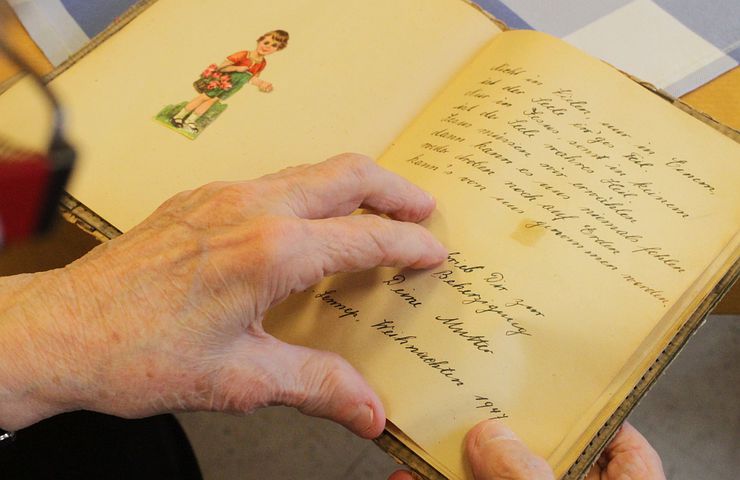 Nicht in Vielen, nur in Einem
ist der Seele ew'ges Teil,
nur in Jesus, sonst in keinem
ist der Seele wahres Heil.
Jesum müssen wir erwählen,
dann kann es uns niemals fehlen
weder droben noch auf Erden
kann's von uns genommen werden.
Dir zur
Beherzigung
Deine Mutter
Lennep, Weihnachten 1947